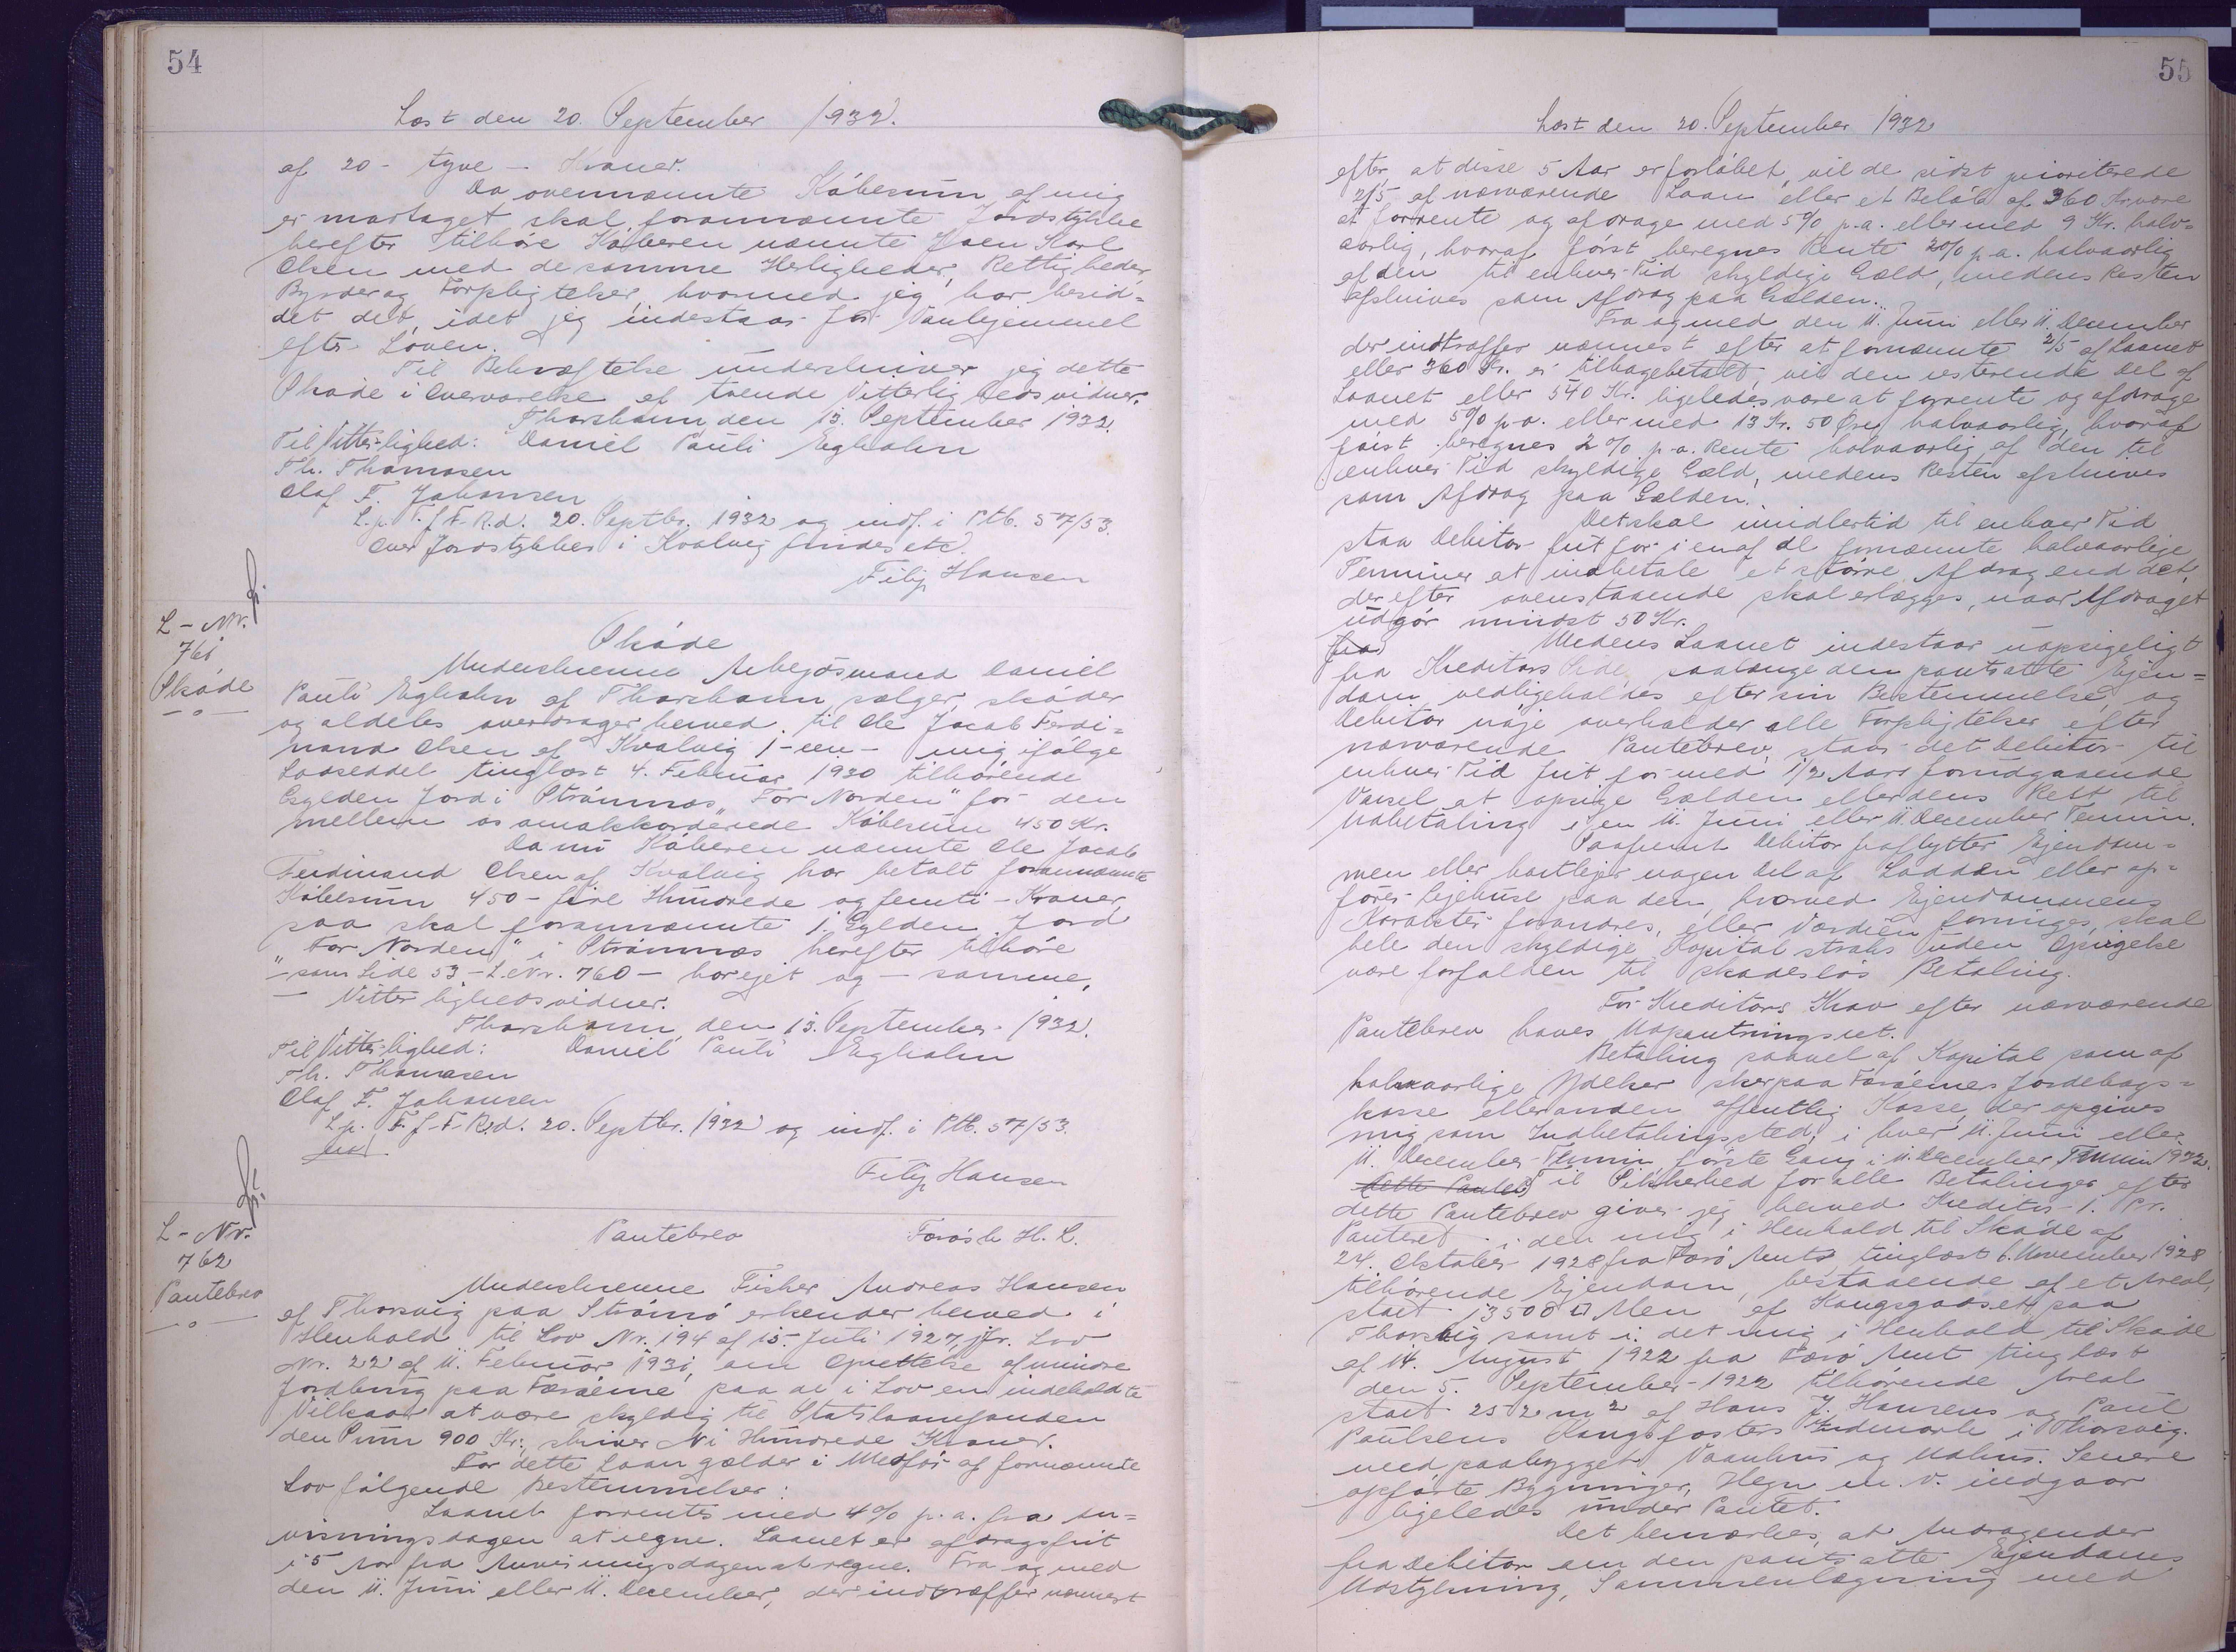 54
Læst den 20. September 1932.
af 20 - tyve - Kroner.
Da ovennævnte Købesum af mig
er modtaget skal forannævnte Jordstykke
herefter tilhøre Køberen nævnte Joen Karl
Olsen med de samme Herligheder, Rettigheder,
Byrder og Forpligtelser, hvormed jeg har besid-
det det, idet jeg indestaar for Vanhjemmel
efter Loven.
Til Bekræftelse underskriver jeg dette
Skøde i Overværelse af tvende Vitterlighedsvidner.
Thorshavn, den 13. September 1932.
Til Vitterlighed: Daniel Pauli Egholm
Th. Thomasen
Olaf F. Johansen
L. p. T. f. F. R. d. 20. Septbr. 1932 og indf. i Ptb. 57/53.
Over Jordstykker i Kvalvig findes etc.
Filip Hansen
L-Nr.
761
Skøde
Skøde
Underskrevne Arbejdsmand Daniel
Pauli Egholm af Thorshavn sælger, skøder
og aldeles overdrager herved til Ole Jacob Ferdi-
nand Olsen af Kvalvig 1 - een - mig ifølge
Lodseddel tinglæst 4. Februar 1930 tilhørende
Gylden Jord i Strømnæs "For Norden" for den
mellem os omakkorderede Købesum 450 Kr.
Da nu Køberen nævnte Ole Jacob
Ferdinand Olsen af Kvalvig har betalt forannævnte
Købesum 450 - fire Hundrede og femti - Kroner,
saa skal forannævnte 1 Gylden Jord
"For Norden" i Strømnæs herefter tilhøre
- som Side 53 - L. Nr. 760 - har ejet og - samme,
- Vitterlighedsvidner.
Thorshavn, den 13. September 1932.
Til Vitterlighed: Daniel Pauli Egholm
Th. Thomasen
Olaf F. Johansen
L. p. F. f. F. R. d. 20. Septbr. 1932 og indf. i Ptb. 57/53.
Filip Hansen
L-Nr.
762
Pantebrev
Pantebrev Færøsk H. L.
Underskrevne Fisker Andreas Hansen
af Thorsvig paa Strømø erkender herved i
Henhold til Lov Nr. 194 af 15. Juli 1927, jfr. Lov
Nr. 22 af 11. Februar 1931, om Oprettelse af mindre
Jordbrug paa Færøerne paa de i Loven indeholdte
Vilkaar at være skyldig til Statslaanefonden
den Sum 900 Kr., skriver Ni Hundrede Kroner.
For dette Laan gælder i Medfør af fornævnte
Lov følgende Bestemmelser:
Laanet forrentes med 4% p. a. fra An-
visningsdagen at regne. Laanet er afdragsfrit
i 5 Aar fra Anvisningsdagen at regne. Fra og med
den 11. Juni eller 11. December, der indtræffer nærmest
55
Læst den 20. September 1932
efter, at disse 5 Aar er forløbet, vil de sidst prioriterede
2/5 af nærværende Laan eller et Beløb af 360 Kr. være
at forrente og afdrage med 5% p. a. eller med 9 Kr. halv-
aarlig, hvoraf først beregnes Rente 2% p. a. halvaarlig
af den til enhver Tid skyldige Gæld, medens Resten
afskrives som Afdrag paa Gælden.
Fra og med den 11. Juni eller 11. December
der indtræffer nærmest efter at fornævnte 2/5 af Laanet
eller 360 Kr. er tilbagebetalt, vil den resterende Del af
Laanet eller 540 Kr. ligeledes være at forrente og afdrage
med 5% p. a. eller med 13 Kr. 50 Øre halvaarlig, hvoraf
først beregnes 2% p. a. Rente halvaarlig af den til
enhver Tid skyldige Gæld, medens Resten afskrives
som Afdrag paa Gælden.
Det skal imidlertid til enhver Tid
staa Debitor frit for i en af de fornævnte halvaarlige
Terminer at indbetale et større Afdrag end det,
der efter ovenstaaende skal erlægges, naar Afdraget
udgør mindst 50 Kr.
Medens Laanet indestaar uopsigeligt
fra Kreditors Side, saalænge den pantsatte Ejen-
dom vedligeholdes efter sin Bestemmelse, og
Debitor nøje overholder alle Forpligtelser efter
nærværende Pantebrev, staar det Debitor til
enhver Tid frit for med 1/2 Aars forudgaaende
Varsel at opsige Gælden eller dens Rest til
Udbetaling i en 11. Juni eller 11. December Termin.
Saafremt Debitor fraflytter Ejendom-
men eller bortlejer nogen Del af Lodden eller op-
fører Lejehuse paa den, hvorved Ejendommens
Karakter forandres, eller Værdien forringes, skal
hele den skyldige Kapital straks uden Opsigelse
være forfalden til skadesløs Betaling.
For Kreditors Krav efter nærværende
Pantebrev haves Udpantningsret.
Betaling saavel af Kapital som af
halvaarlige Ydelser sker paa Færøernes Jordebogs-
kasse eller anden offentlig Kasse, der opgives
mig som Indbetalingssted, i hver 11. Juni eller
11. December Termin første Gang i 11. December Termin 1932.
Til Sikkerhed for alle Betalinger efter
dette Pantebrev giver jeg herved Kreditor 1. Pr.
Panteret i den mig i Henhold til Skøde af
24. Oktober 1928 fra Færø Amt, tinglæst 6. November 1928
tilhørende Ejendom, bestaaende af et Areal,
stort 13508 □ Alen af Kongsgodset paa
Thorsvig samt i det mig i Henhold til Skøde
af 14. August 1922 fra Færø Amt tinglæst
den 5. September 1922 tilhørende Areal
stort 252 m² af Hans J. Hansens og Paul
Paulsens Kongsfæsters Indmark i Thorsvig.
med paabygget Vaanhus og Udhus. Senere
opførte Bygninger, Hegn m. v. indgaar
ligeledes under Pantet.
Det bemærkes, at Andragender
fra Debitor om den pantsatte Ejendoms
Udstykning, Sammenlægning med